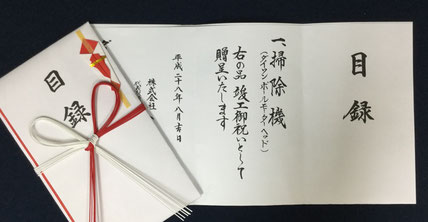 目録
一、掃除機
(ダイソンボールモーターヘッド)
右の品 竣工御祝いとして
贈呈いたします
平成二十八年八月吉日
株式会社
目録